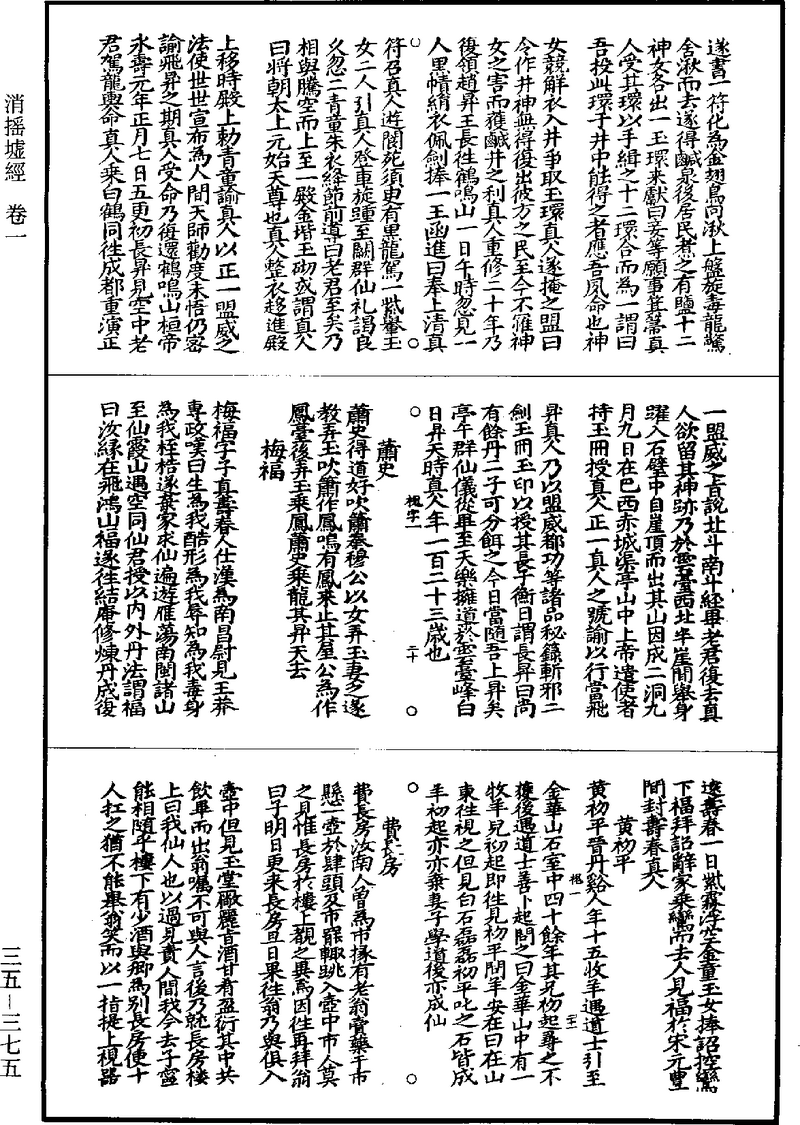 消搖墟經　卷一
三五—三七五
遂書一符化為金翅鳥向湫上盤旋毒龍驚
舍湫而去遂得鹹泉後居民煮之有鹽十二
神女各出一玉環來獻曰妾等願事箕箒真
人受其環以手緝之十二環合而為一謂曰
吾投此環子井中能得之者應吾夙命也神
女競解衣入井爭取玉環真人遂掩之盟曰
令作井神無得復出彼方之民至今不罹神
女之害而獲鹹井之利真人重修二十年乃
復領趙昇王長往鶴鳴山一日午時忽見一
人黑幘絹衣佩劍捧一玉函進曰奉上清真
符召真人遊閬苑須臾有黑龍駕一紫轝玉
女二人引真人登車旋踵至闕群仙礼謁良
久忽二青童朱衣絳節前導曰老君至矣乃
相與騰空而上至一殿金堦玉砌或謂真人
曰將朝太上元始天尊也真人整衣趍進殿
上移時殿上勅青童諭真人以正一盟威之
法使世世宣布為人間天師勸度未悟仍密
諭飛昇之期真人受命乃復還鶴鳴山桓帝
永壽元年正月七日五更初長昇見空中老
君駕龍輿命真人乘白鶴同往成都重演正
一盟威之旨說北斗南斗経畢老君復去真
人欲留其神跡乃於雲臺西北半崖間舉身
躍入石壁中自崖頂而出其山因成二洞九
月九日在巴西赤城渠亭山中上帝遣使者
持玉冊授真人正一真人之號諭以行當飛
昇真人乃以盟威都功等諸品秘籙斬邪二
劍玉冊玉印以授其長子衡日謂長昇曰尚
有餘丹二子可分餌之今日當隨吾上昇矣
亭午群仙儀從畢至天樂擁道於雲臺峰白
日昇天時真人年一百二十三歲也
蕭史
蕭史得道好吹簫秦穆公以女弄玉妻之遂
教弄玉吹簫作鳳鳴有鳳來止其屋公為作
鳳臺後弄玉乘鳳蕭史乘龍其昇天去
梅福
梅福字子真壽春人仕漢為南昌尉見王莽
專政嘆曰生為我酷形為我辱知為我毒身
為我桎梏遂棄家求仙遍遊雁蕩南閩諸山
至仙霞山遇空同仙君授以內外丹法謂福
曰汝緣在飛鴻山福遂往結庵修煉丹成復
還壽春一日紫霧浮空金童玉女捧詔控鸞
下福拜詔辭家乘鸞而去人見福於宋元豐
間封壽春真人
黃初平
黃初平晉丹谿人年十五牧羊遇道士引至
金華山石室中四十餘年其兄初起尋之不
獲後遇道士善卜起問之曰金華山中有一
牧羊兒初起即往見初平問羊安在曰在山
東往視之但見白石磊磊初平叱之石皆成
羊初起亦亦棄妻子學道後亦成仙
費長房
費長房汝南人曾為市掾有老翁賣藥于市
懸一壺於肆頭及市罷輒跳入壺中市人莫
之見惟長房於樓上覩之異焉因往再拜翁
曰子明日更來長房旦日果往翁乃與俱入
壺中但見玉堂廠麗旨酒甘肴盈衍其中共
飲畢而出翁囑不可與人言後乃就長房樓
上曰我仙人也以過見責人間我今去子寧
能相隨乎樓下有少酒與卿為別長房使十
人扛之猶不能舉翁笑而以一指提上視器